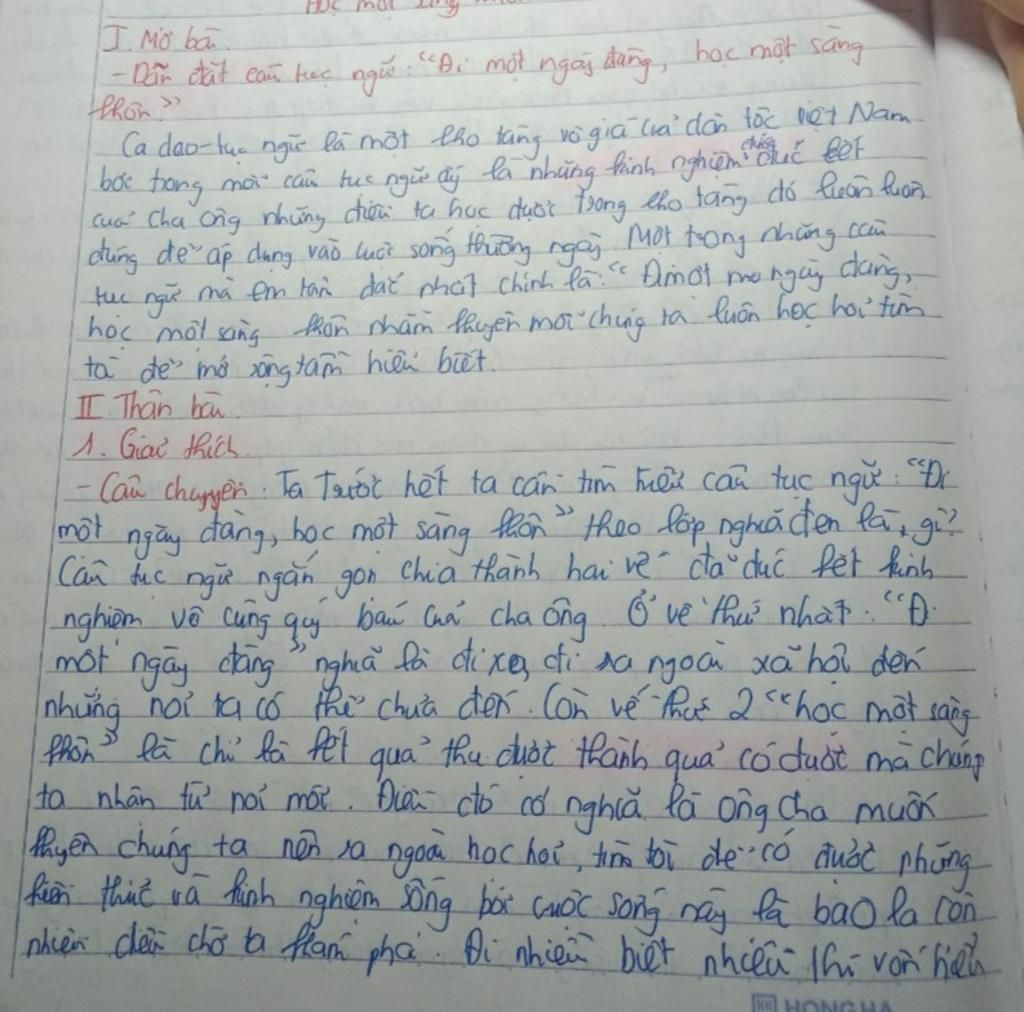 Học một sàng
I. Mở bài
- Dẫn dắt câu tục ngữ: "Đi một ngày đàng, học một sàng
khôn"
Ca dao-tục ngữ là một kho tàng vô giá của dân tộc Việt Nam
bởi trong mỗi câu tục ngữ ấy là những kinh nghiệm đúc kết
của cha ông những điều ta học được trong kho tàng đó luôn luôn
đúng để áp dụng vào cuộc sống thường ngày Một trong những câu
tục ngữ mà em tâm đắc nhất chính là: "Đi một ngày đàng,
học một sàng khôn nhằm khuyên mỗi chúng ta luôn học hỏi tìm
tòi để mở rộng tầm hiểu biết.
II. Thân bài
1. Giải thích
- Câu chuyện: Ta Trước hết ta cần tìm hiểu câu tục ngữ: "Đi
một ngày đàng, học một sàng khôn" theo lớp nghĩa đen là, gì?
Câu tục ngữ ngắn gọn chia thành hai vế đã đúc kết kinh
nghiệm vô cùng quý báu của cha ông. Ở vế thứ nhất: "Đi
một ngày đàng" nghĩa là đi xa, đi ra ngoài xã hội đến
những nơi ta có thể chưa đến. Còn vế thứ 2 "học một sàng
khôn" là chỉ là kết quả thu được thành quả có được mà chúng
ta nhận từ nơi mới. Điều đó có nghĩa là ông cha muốn
khuyên chúng ta nên ra ngoài học hỏi, tìm tòi để có được những
kiến thức và kinh nghiệm sống bởi cuộc sống này là bao la còn
nhiều điều chờ ta khám phá. Đi nhiều biết nhiều thì vốn hiểu
HONG HA